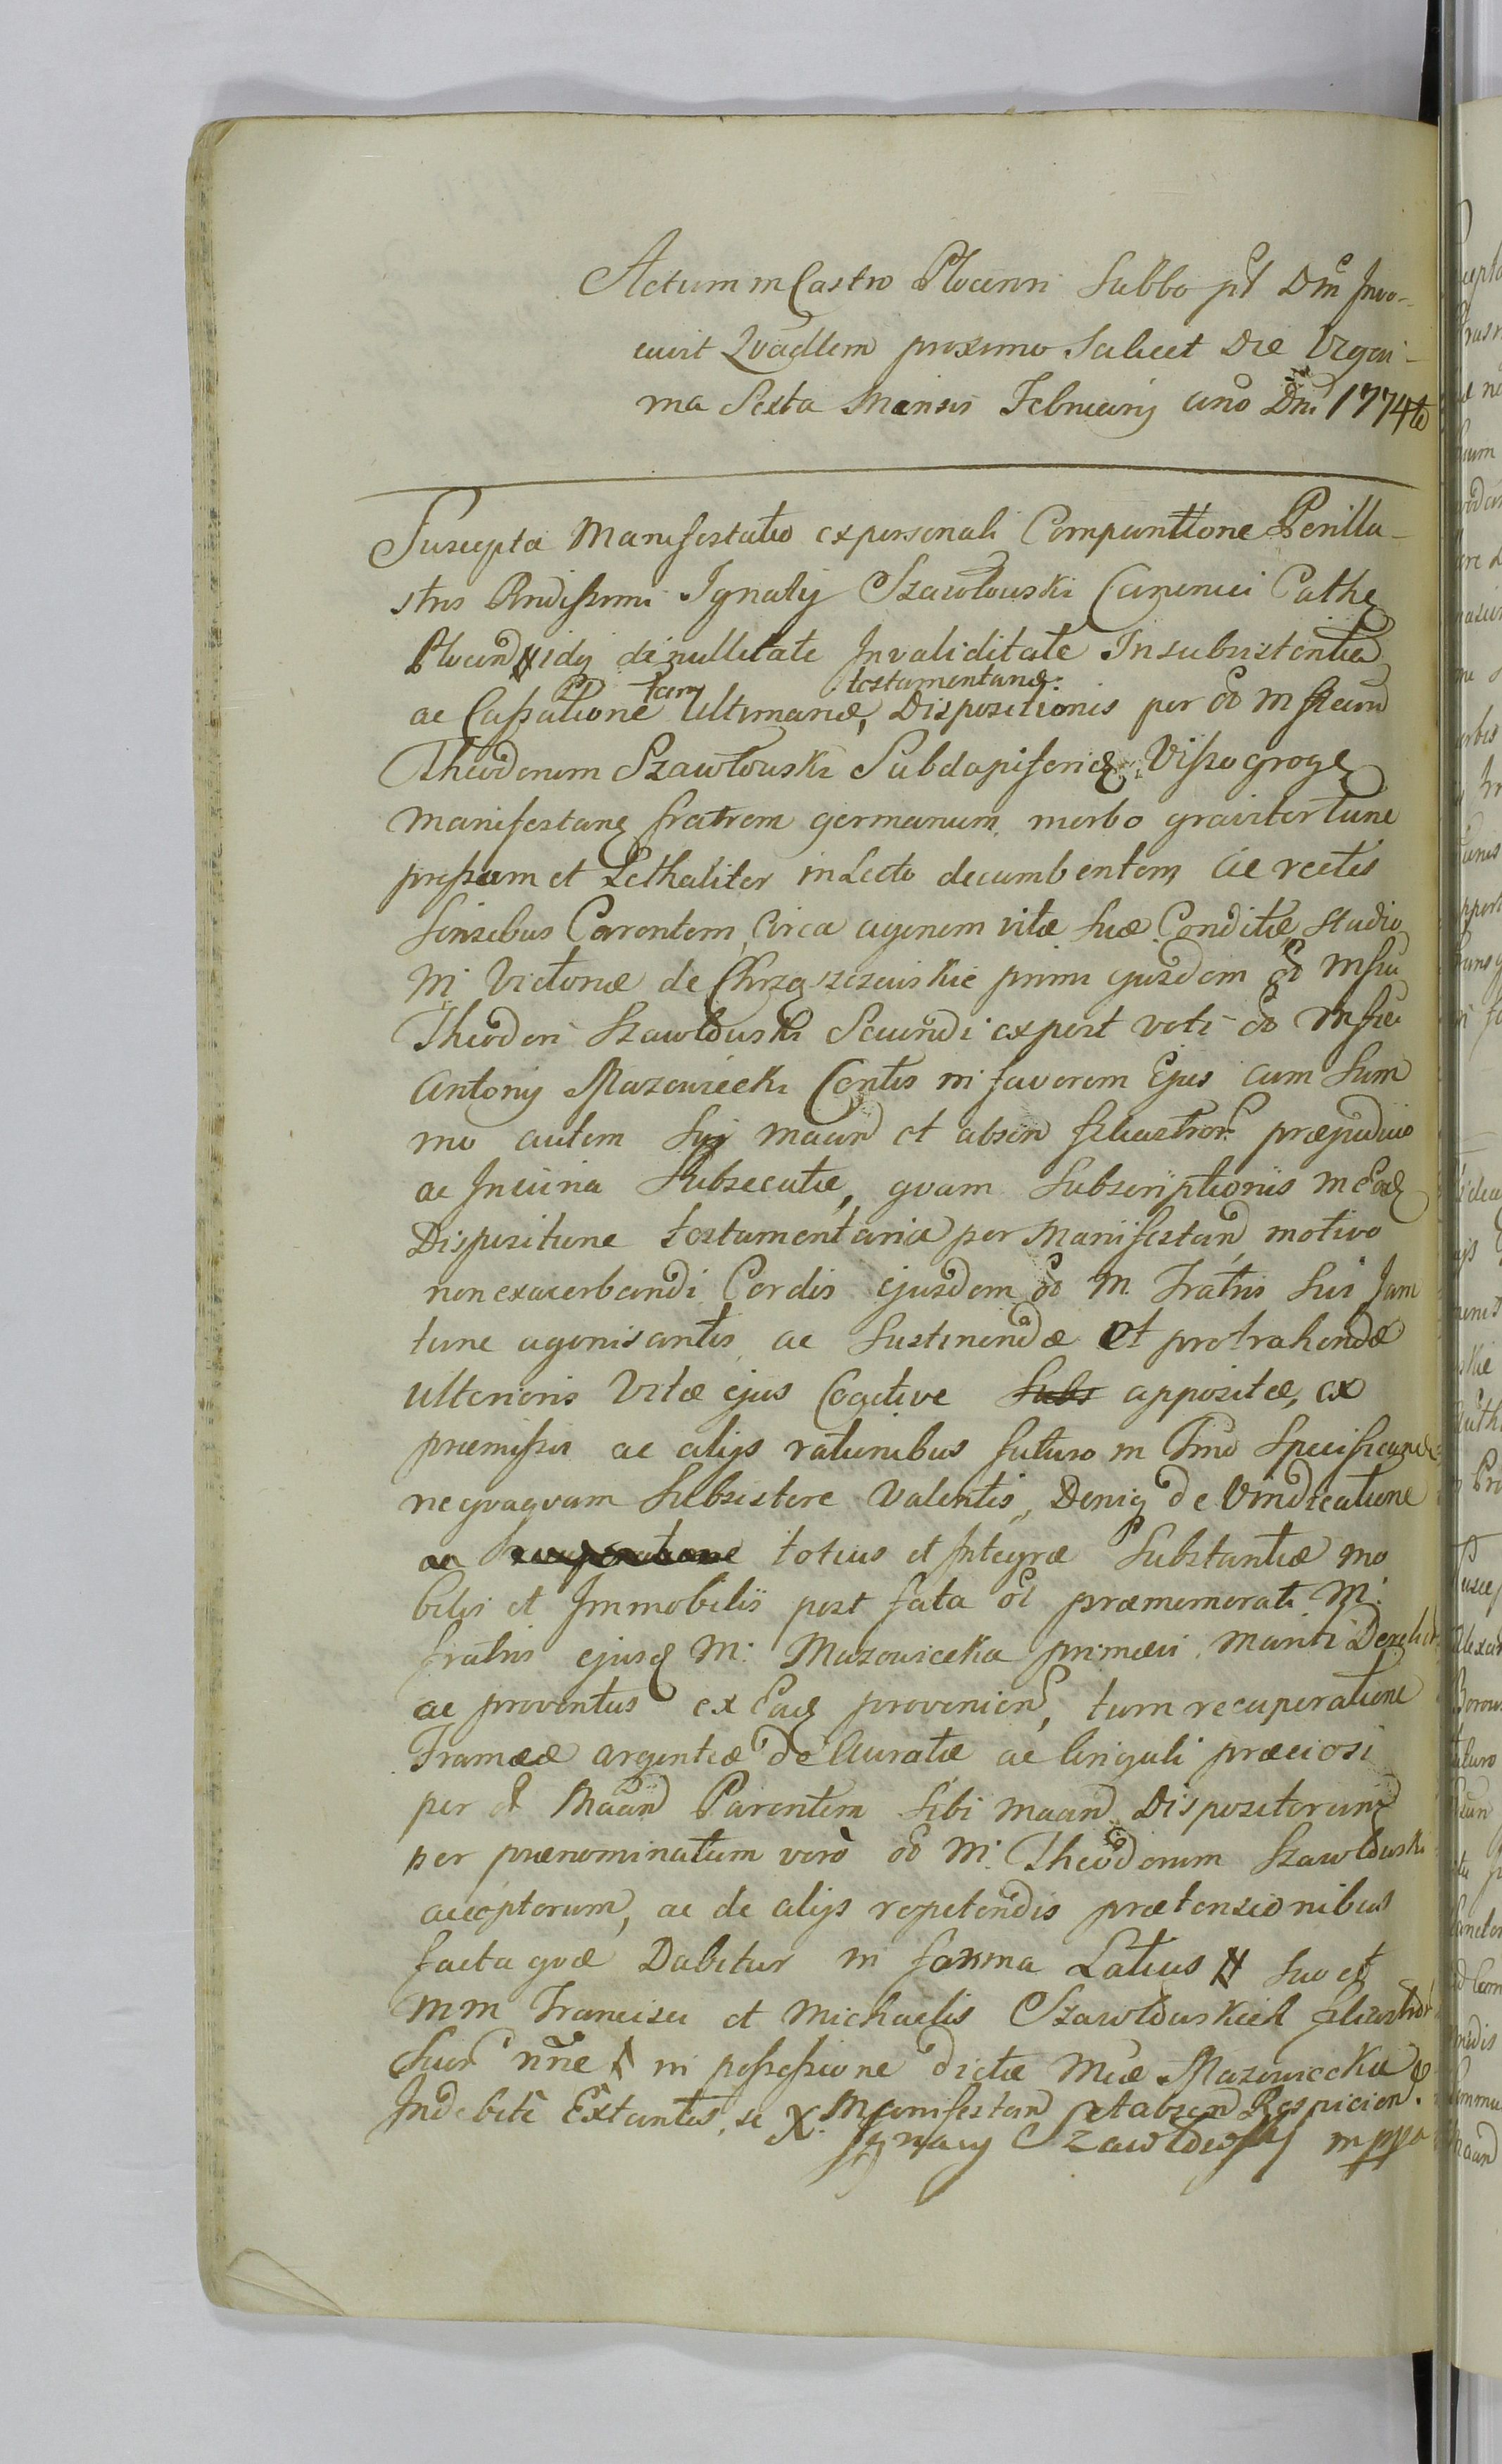 Actum in Castro Plocensi Sabbo pt Dm Invo-
cavit Quadlem proximo Scilicet Die Vigesi-
ma Sexta Mensis Februarij ano Dni 1774to
Suscepta Manifestatio ex personali Comparittione Perillu-
stris Rndissimi Ignatij Szawłowski Canonici Cathe
Plocen idq de nullitate Invaliditate Insubsistentia
tam testamentariæ
ac Cassatione Ultimariæ, Dispositionis per olo M ficum
Theodorum Szawłowski Subdapiferiq Vissogroge
Manifestang fratrem germanum morbo graviter tunc
pressum et Lethaliter in Lecto decumbentem ac rectis
Sensibus Carentem, Circa agonem vitæ Suæ Conditæ, Studio
M. Victoriæ de Chrząszczewskie primi ejusdem olo Mfici
Theodori Szawłowski Secundi ex post voti olo Mfici
Antonij Mazowiecki Contis in favorem Ejus cum Sum
mo autem Sui maand et absen filiastror præjudicio
ac Injuria Subsecutæ, quam Subscriptionis in Ead
Dispositione testamentaria per Manifestan, motivo
non exacerbandi Cordis ejusdem olo M. Fratris Sui Jam
tunc agonisantis ac Sustinendæ et protrahendæ
Ulterioris Vitæ ejus Coactive Subs appositæ, ex
præmissis ac alijs rationibus futuro in Tmo Specificand
nequaquam Subsistere Valentis, Deniq de Vindicatione
ac recuperatione totius et Integræ Substantiæ mo
bilis et Immobilis post fata ol præmemorati M:
fratris ejusq M: Mazowiecka primævi Mariti Derelict
ac proventus ex Eaq provenien, tum recuperatione
Frameæ argenteæ de Auratæ ac Cinguli præciosi
per ol Maand Parentem Sibi maand Dispositorum
per prænominatum verò olo M: Theodorum Szawłowski
acceptorum, ac de alijs repetendis prætensionibus
facta quæ Dabitur in forma Latius # Suo et
MM Francisci et Michaelis Szawłowskich filiastror
Suor nne # in possessione dictæ Mcæ Mazowiecka
Indebitè Extantes, se X. Manifestan et absen Respicien.
Ignacy Szawłowski mppa